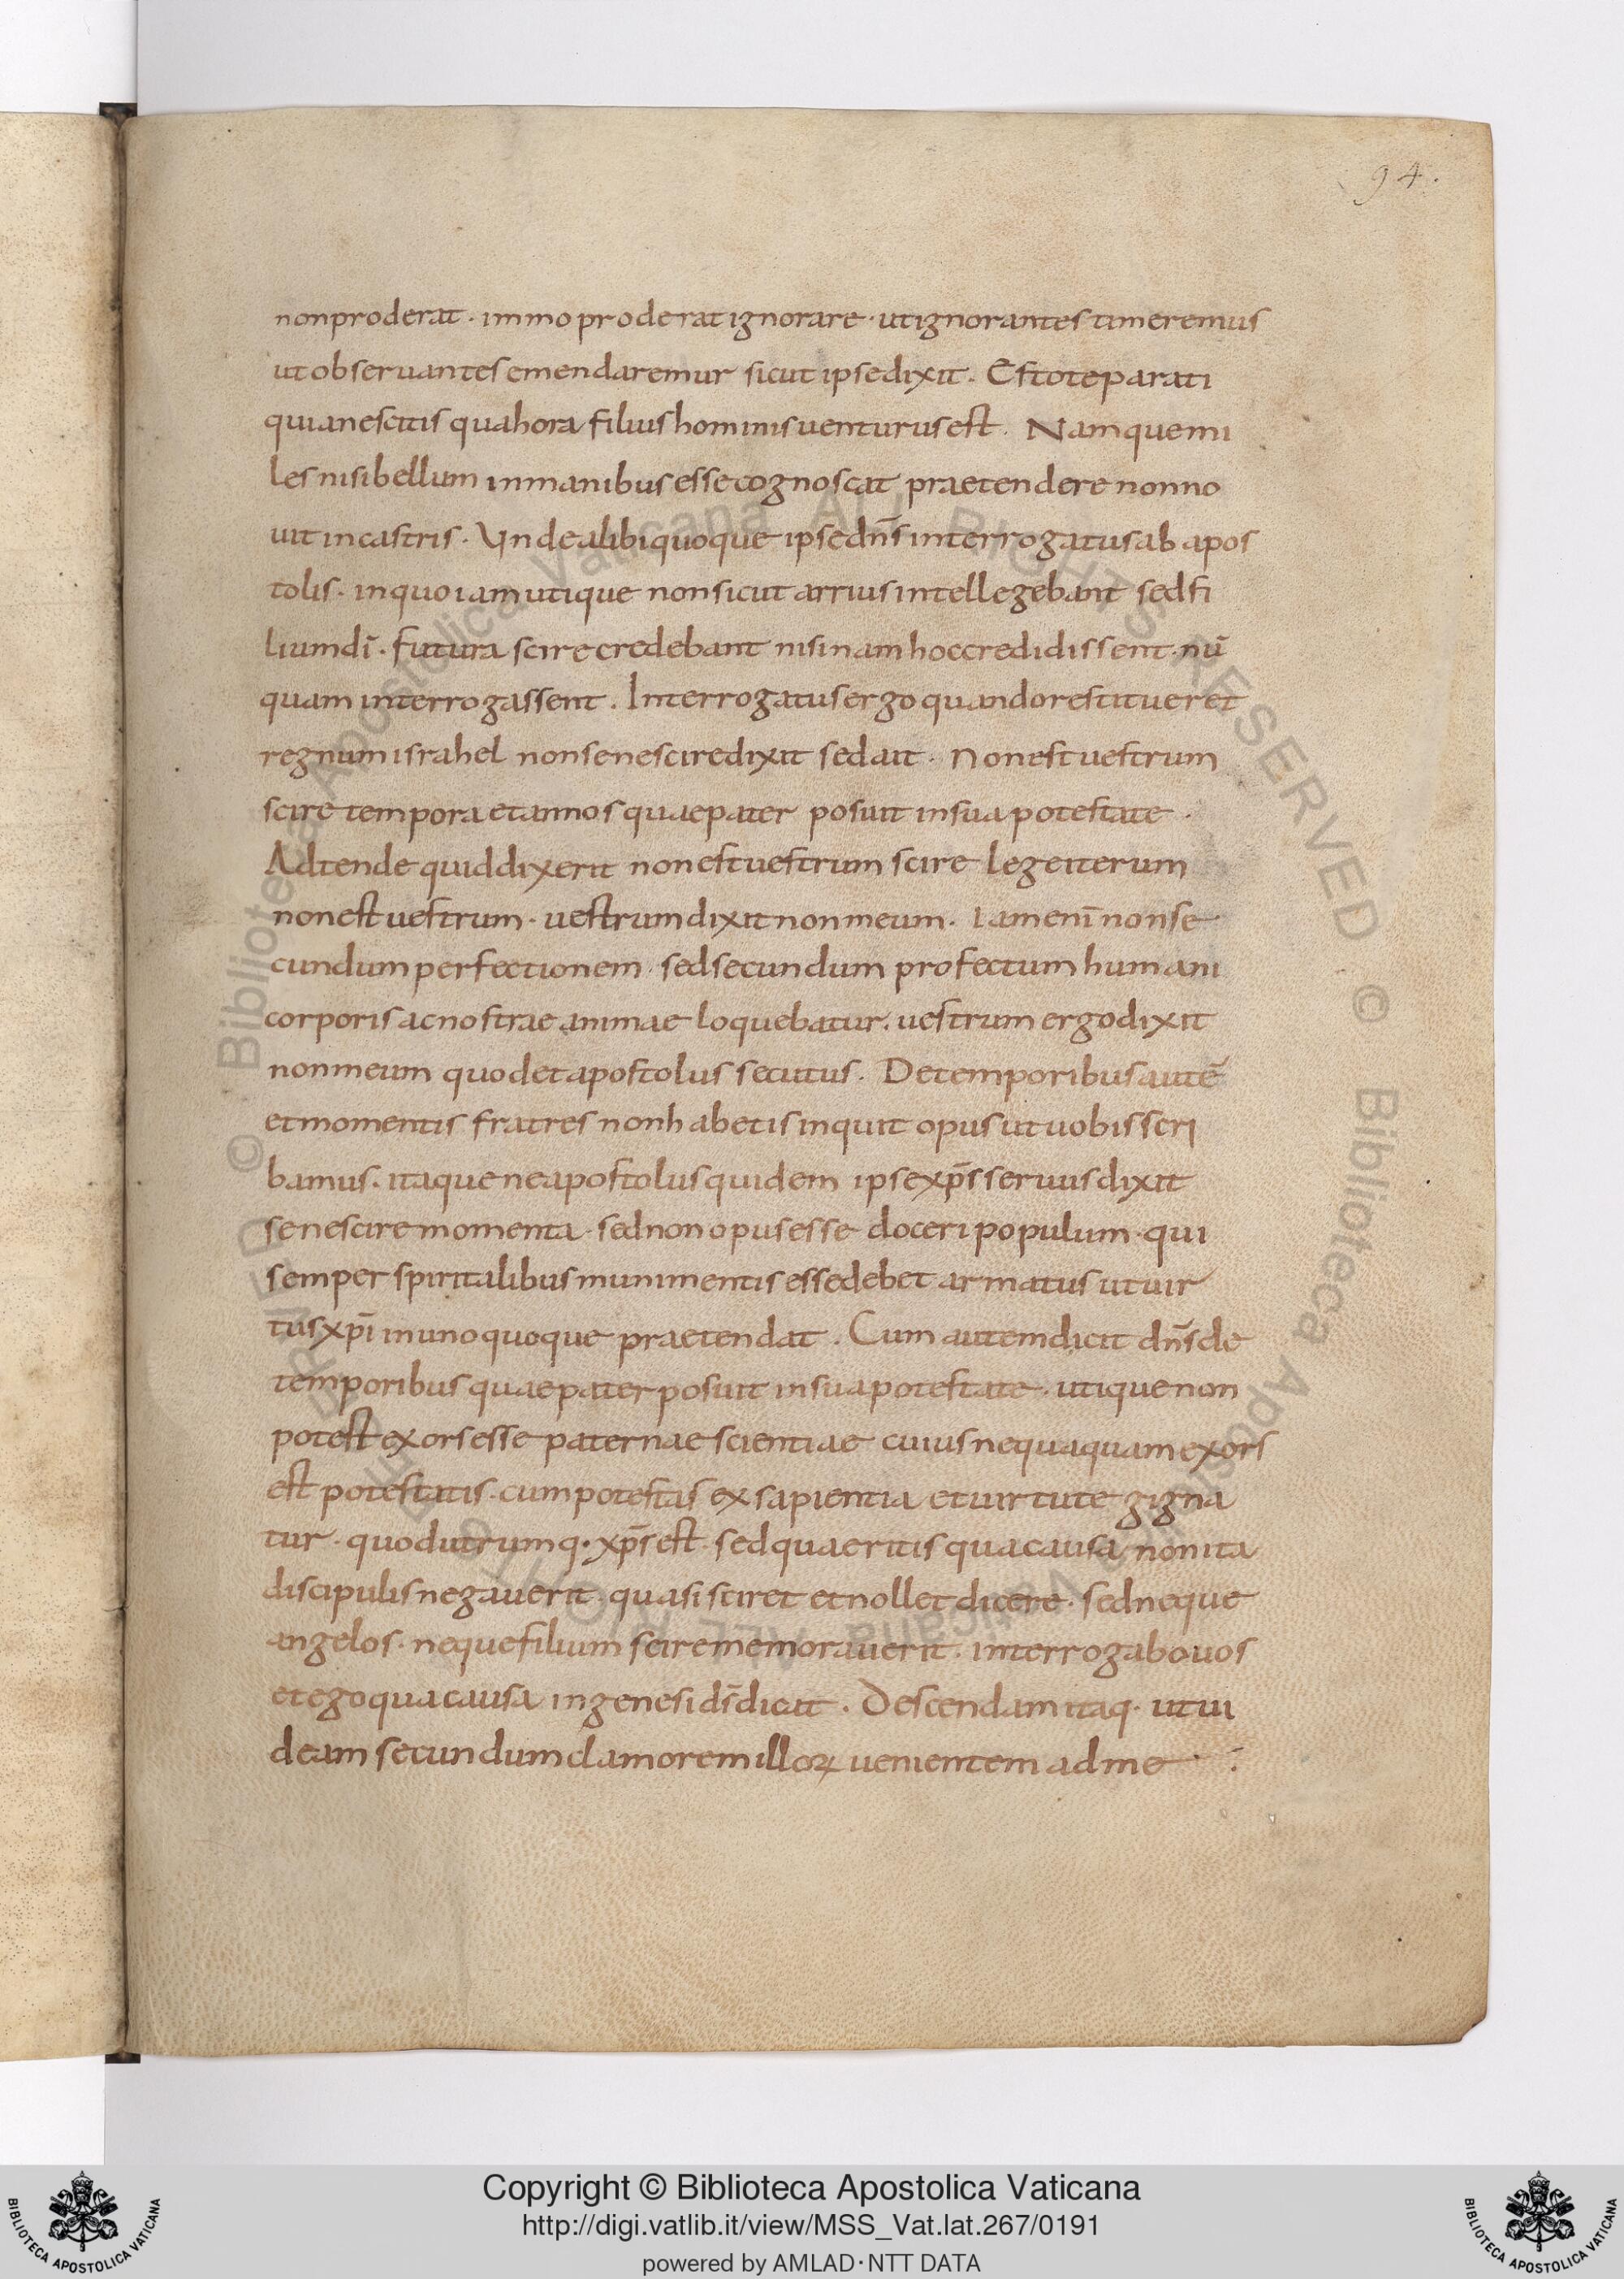 94.
non proderat · immo proderat ignorare · ut ignorantes timeremus
ut observantes emendaremur sicut ipse dixit. Estote parati
quia nescitis qua hora filius hominis uenturus est. Namque mi
les nisi bellum in manibus esse cognoscat praetendere non no
uit in castris. Unde alibi quoque ipse dn̄s interrogatus ab apos
tolis. in quo iam utique non sicut arrius intellegebant sed fi
lium dī. futura scire credebant nisi nam hoc credidissent. nū
quam interrogassent. Interrogatus ergo quando restitueret
regnum israhel non se nescire dixit sed ait. Non est uestrum
scire tempora et annos quae pater posuit in sua potestate.
Adtende quid dixerit non est uestrum scire lege iterum
non est uestrum. uestrum dixit non meum. iam enī non se
cundum perfectionem. sed secundum profectum humani
corporis ac nostrae animae loquebatur. uestrum ergo dixit
non meum quod et apostolus secutus. De temporibus autē
et momentis fratres non habetis inquit opus ut uobis scri
bamus. itaque ne apostolus quidem ipse xp̄s seruus dixit
se nescire momenta. sed non opus esse doceri populum. qui
semper spiritalibus munimentis esse debet armatus ut uir
tus xpī in uno quoque praetendat. Cum autem dicit dn̄s de
temporibus quae pater posuit in sua potestate. utique non
potest exors esse paternae scientiae cuius nequaquam exors
est potestatis. cum potestas ex sapientia et uirtute gigna
tur. quod utrumq. xp̄s est. sed quaeritis qua causa non ita
discipulis negauerit. quasi sciret et nollet dicere. sed neque
angelos. neque filium scire memorauerit. interrogabo uos
et ego qua causa in genesi ds̄ dicat. Descendam itaq. ut ui
deam secundum clamorem illoꝝ uenientem ad me
© Biblioteca Apostolica Vaticana ALL RIGHTS RESERVED
© Biblioteca Apostolica Vaticana ALL RIGHTS RESERVED
Copyright © Biblioteca Apostolica Vaticana
http://digi.vatlib.it/view/MSS_Vat.lat.267/0191
powered by AMLAD·NTT DATA
BIBLIOTECA APOSTOLICA VATICANA
BIBLIOTECA APOSTOLICA VATICANA